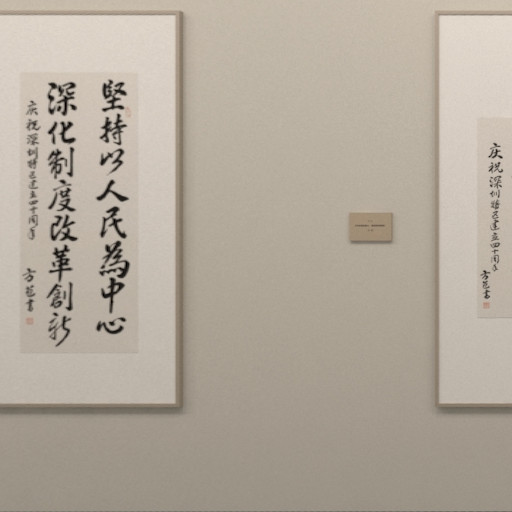 坚持以人民為中心
深化制度改革創新
庆祝深圳特区建立四十周年
方芭書
庆祝深圳特区建立四十周年
方芭書